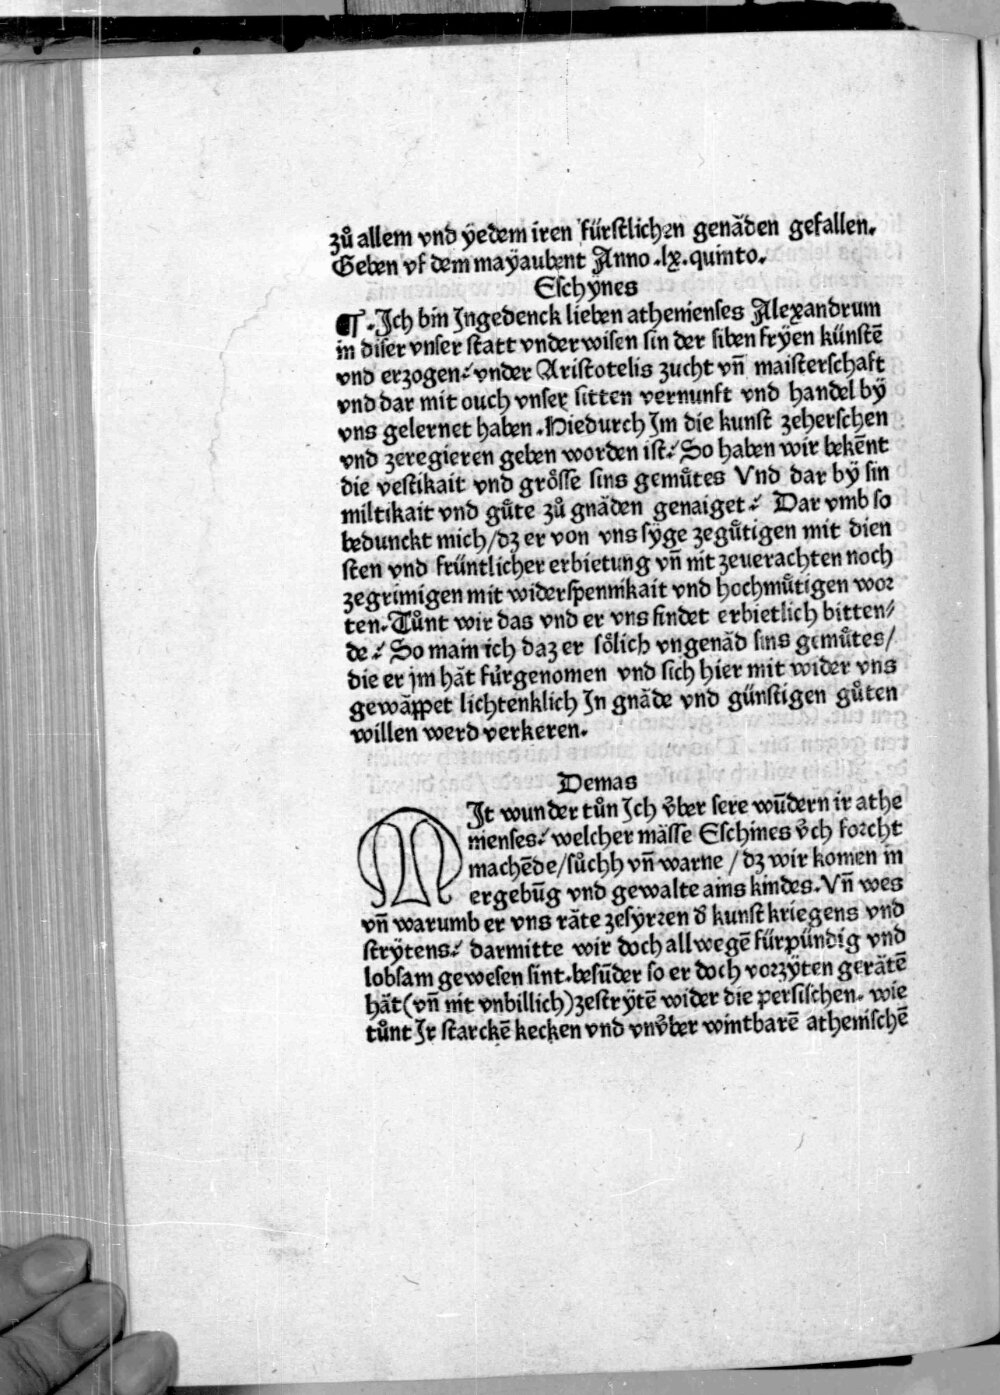 zů allem vnd ÿedem iren fürstlichen genäden gefallen.
Geben vf dem maÿaubent Anno .lx. quinto.
Eschÿnes
¶ .Ich bin Ingedenck lieben athenienses Alexandrum
in diser vnser statt vnderwisen sin der siben frÿen künstē
vnd erzogen: vnder Aristotelis zucht vn̄ maisterschaft
vnd dar mit ouch vnser sitten vernunft vnd handel bÿ
vns gelernet haben .Hiedurch Im die kunst zeherschen
vnd zeregieren geben worden ist: So haben wir bekēnt
die vestikait vnd grösse sins gemůtes Vnd dar bÿ sin
miltikait vnd gůte zů gnäden genaiget: Dar vmb so
bedunckt mich/dz er von vns sÿge zegůtigen mit dien
sten vnd früntlicher erbietung vn̄ nit zeuerachten noch
zegrimigen mit widerspennikait vnd hochmůtigen wor
ten. Tůnt wir das vnd er vns findet erbietlich bitten/
de: So main ich daz er sölich vngenäd sins gemůtes/
die er jm hät fürgenomen vnd sich hier mit wider vns
gewäppet lichtenklich In gnäde vnd günstigen gůten
willen werd verkeren.
Demas
MIt wunder tůn Ich v̊ber sere wūdern ir athe
nienses: welcher mässe Eschines v̊ch forcht
machēde/sůchh vn̄ warne /dz wir komen in
ergebūg vnd gewalte ains kindes. Vn̄ wes
vn̄ warumb er vns räte zesyrzen d̄ kunst kriegens vnd
strÿtens: darmitte wir doch allwegē fürpündig vnd
lobsam gewesen sint. besūder so er doch vorzÿten gerätē
hät(vn̄ nit vnbillich)zestrÿtē wider die persischen. wie
tůnt Ir starckē kecken vnd vnv̊ber wintbarē athenischē